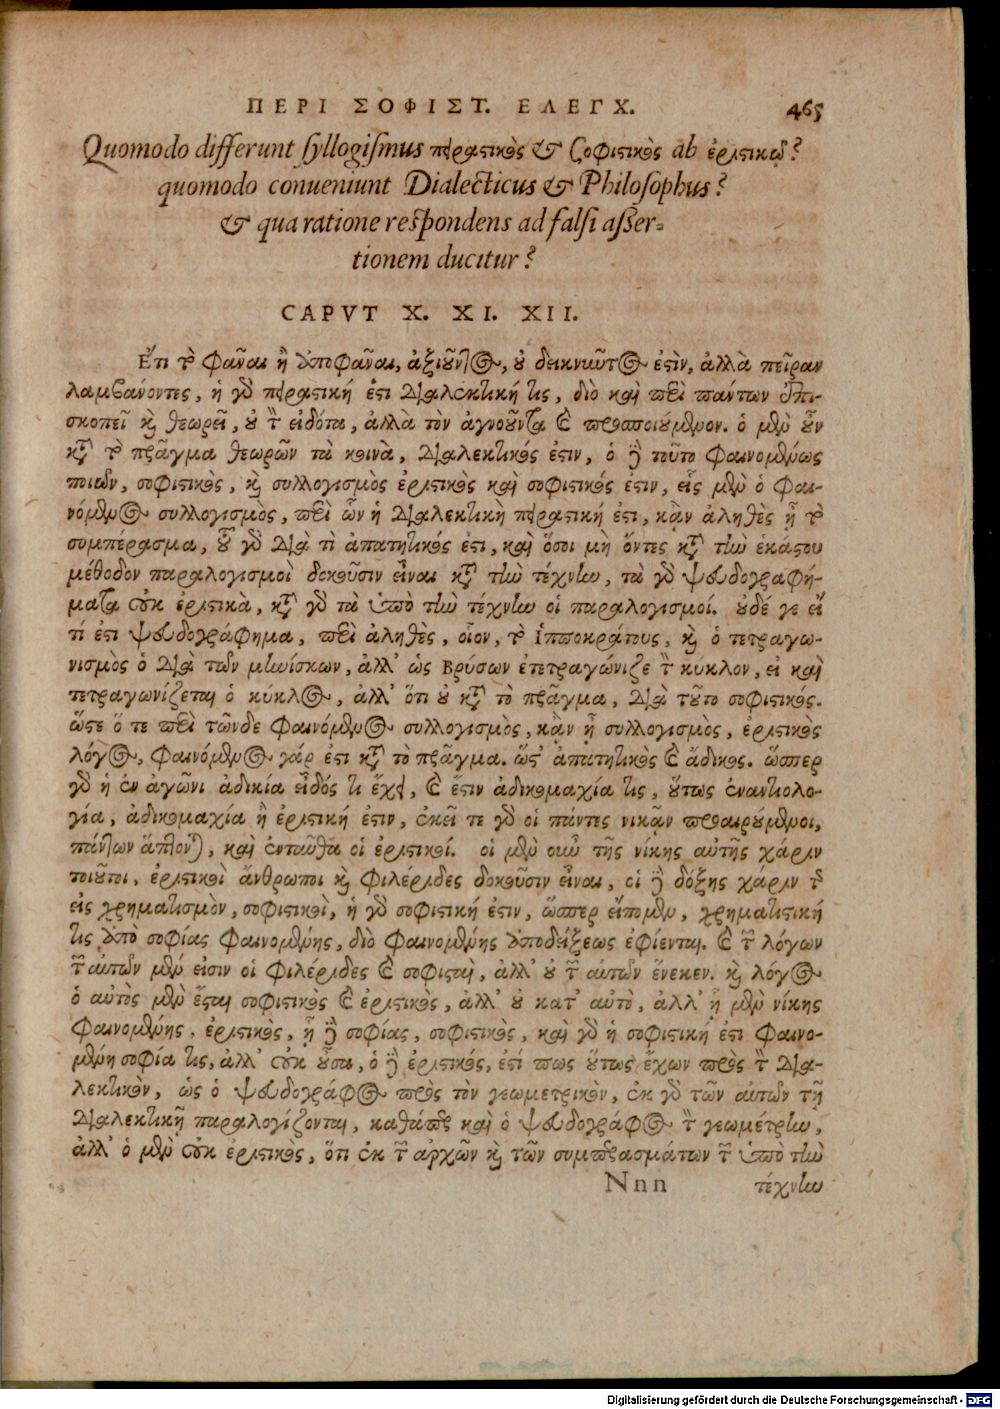 ΠΕΡΙ ΣΟΦΙΣΤ. ΕΛΕΓΧ. 465
Quomodo differunt syllogismus πειραστικὸς & σοφιστικὸς ab ἐριστικῷ?
quomodo conueniunt Dialecticus & Philosophus?
& qua ratione respondens ad falsi asser-
tionem ducitur?
CAPVT X. XI. XII.
Ἔτι τὸ φᾶναι ἢ ἀποφᾶναι, ἀξιοῦντος, οὐ δεικνῦντος ἐστὶν, ἀλλὰ πεῖραν
λαμβάνοντες, ἡ γὰρ πειραστική ἐστι διαλεκτική τις, διὸ καὶ περὶ πάντων ἐπι-
σκοπεῖ καὶ θεωρεῖ, οὐ τὸν εἰδότα, ἀλλὰ τὸν ἀγνοοῦντα καὶ προσποιούμενον. ὁ μὲν οὖν
κατὰ τὸ πρᾶγμα θεωρῶν τὰ κοινὰ, διαλεκτικός ἐστιν, ὁ δὲ τοῦτο φαινομένως
ποιῶν, σοφιστικὸς, καὶ συλλογισμὸς ἐριστικὸς καὶ σοφιστικός ἐστιν, εἷς μὲν ὁ φαι-
νόμενος συλλογισμὸς, περὶ ὧν ἡ διαλεκτικὴ πειραστική ἐστι, κἂν ἀληθὲς ᾖ τὸ
συμπέρασμα, τοῦ γὰρ διὰ τὶ ἀπατητικός ἐστι, καὶ ὅσοι μὴ ὄντες κατὰ τὴν ἑκάστου
μέθοδον παραλογισμοὶ δοκοῦσιν εἶναι κατὰ τὴν τέχνην, τὰ γὰρ ψευδογραφή-
ματα οὐκ ἐριστικὰ, κατὰ γὰρ τὰ ὑπὸ τὴν τέχνην οἱ παραλογισμοί. οὐδέ γε εἴ
τί ἐστι ψευδογράφημα, περὶ ἀληθὲς, οἷον, τὸ Ἱπποκράτους, καὶ ὁ τετραγω-
νισμὸς ὁ διὰ τῶν μηνίσκων, ἀλλ' ὡς Βρύσων ἐτετραγώνιζε τὸν κύκλον, εἰ καὶ
τετραγωνίζεται ὁ κύκλος, ἀλλ' ὅτι οὐ κατὰ τὸ πρᾶγμα, διὰ τοῦτο σοφιστικός.
ὥστε ὅ τε περὶ τῶνδε φαινόμενος συλλογισμὸς, κἂν ᾖ συλλογισμὸς, ἐριστικὸς
λόγος, φαινόμενος γάρ ἐστι κατὰ τὸ πρᾶγμα. ὥστ' ἀπατητικὸς καὶ ἄδικος. ὥσπερ
γὰρ ἡ ἐν ἀγῶνι ἀδικία εἶδός τι ἔχει, καὶ ἔστιν ἀδικομαχία τις, οὕτως ἐναντιολο-
γία, ἀδικομαχία ἡ ἐριστική ἐστιν, ἐκεῖ τε γὰρ οἱ πάντες νικᾷν προαιρούμενοι,
πάντων ἅπτονται, καὶ ἐνταῦθα οἱ ἐριστικοί. οἱ μὲν οὖν τῆς νίκης αὐτῆς χάριν
τοιοῦτοι, ἐριστικοὶ ἄνθρωποι καὶ φιλέριδες δοκοῦσιν εἶναι, οἱ δὲ δόξης χάριν τῆς
εἰς χρηματισμὸν, σοφιστικοὶ, ἡ γὰρ σοφιστική ἐστιν, ὥσπερ εἴπομεν, χρηματιστική
τις ἀπὸ σοφίας φαινομένης, διὸ φαινομένης ἀποδείξεως ἐφίενται. καὶ τῶν λόγων
τῶν αὐτῶν μέν εἰσιν οἱ φιλέριδες καὶ σοφισταὶ, ἀλλ' οὐ τῶν αὐτῶν ἕνεκεν. καὶ λόγος
ὁ αὐτὸς μὲν ἔσται σοφιστικὸς καὶ ἐριστικὸς, ἀλλ' οὐ κατ' αὐτὸ, ἀλλ' ᾗ μὲν νίκης
φαινομένης, ἐριστικὸς, ᾗ δὲ σοφίας, σοφιστικὸς, καὶ γὰρ ἡ σοφιστική ἐστι φαινο-
μένη σοφία τις, ἀλλ' οὐκ οὖσα, ὁ δὲ ἐριστικός, ἐστί πως οὕτως ἔχων πρὸς τὸν δια-
λεκτικὸν, ὡς ὁ ψευδογράφος πρὸς τὸν γεωμετρικὸν, ἐκ γὰρ τῶν αὐτῶν τῇ
διαλεκτικῇ παραλογίζονται, καθάπερ καὶ ὁ ψευδογράφος τὸν γεωμέτρην,
ἀλλ' ὁ μὲν οὐκ ἐριστικὸς, ὅτι ἐκ τῶν ἀρχῶν καὶ τῶν συμπερασμάτων τῶν ὑπὸ τὴν
Nnn τέχνην
Digitalisierung gefördert durch die Deutsche Forschungsgemeinschaft - DFG